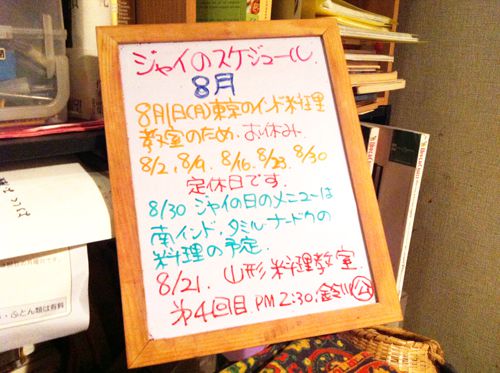 ジャイのスケジュール
8月
8月1日(月)東京のインド料理
教室のため、お休み.
8/2, 8/9, 8/16, 8/23, 8/30
定休日です.
8/30 ジャイの日のメニューは
南インド.タミルナードゥの
料理の予定.
8/21. 山形料理教室.
第4回目. PM2:30. 鈴川公
ふとん類は有料